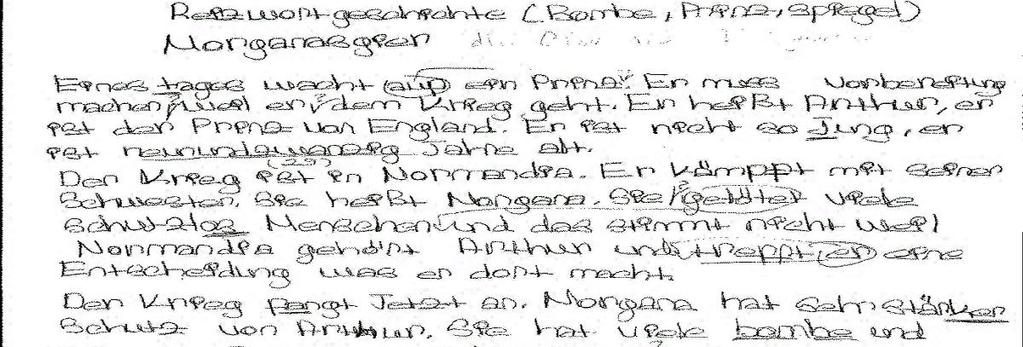 Reizwortgeschichte (Bombe, Prinz, Spiegel)
Morganasgier
Eines tages wacht auf ein Prinz. Er muss Vorbereitung
machen weil er dem Krieg geht. Er heißt Arthur, er
ist der Prinz von England. Er ist nicht so Jung, er
ist neunundzwanzig Jahre alt.
(29)
Der Krieg ist in Normandia. Er kämppt mit seiner
Schwester. Sie heißt Morgana. Sie getötet viele
schutzlos Menschen und das stimmt nicht weil
Normandia gehört Arthur und trifft er eine
Entscheidung was er dort macht.
Der Krieg fangt Jetzt an. Morgana hat sehr stärken
Schutz von Arthur. Sie hat viele bombe und